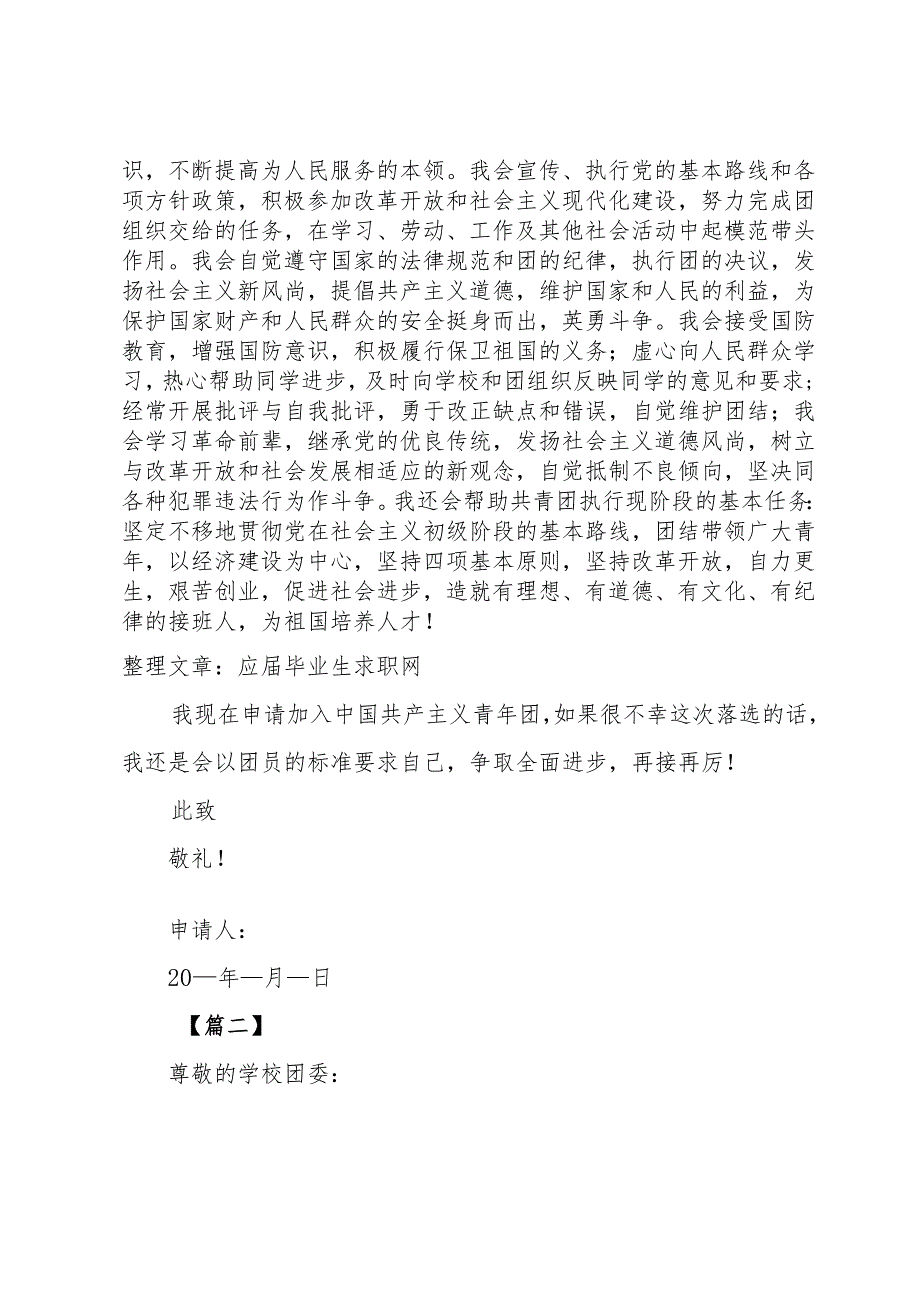 识，不断提高为人民服务的本领。我会宣传、执行党的基本路线和各
项方针政策，积极参加改革开放和社会主义现代化建设，努力完成团
组织交给的任务，在学习、劳动、工作及其他社会活动中起模范带头
作用。我会自觉遵守国家的法律规范和团的纪律，执行团的决议，发
扬社会主义新风尚，提倡共产主义道德，维护国家和人民的利益，为
保护国家财产和人民群众的安全挺身而出，英勇斗争。我会接受国防
教育，增强国防意识，积极履行保卫祖国的义务；虚心向人民群众学
习，热心帮助同学进步，及时向学校和团组织反映同学的意见和要求；
经常开展批评与自我批评，勇于改正缺点和错误，自觉维护团结；我
会学习革命前辈，继承党的优良传统，发扬社会主义道德风尚，树立
与改革开放和社会发展相适应的新观念，自觉抵制不良倾向，坚决同
各种犯罪违法行为作斗争。我还会帮助共青团执行现阶段的基本任务：
坚定不移地贯彻党在社会主义初级阶段的基本路线，团结带领广大青
年，以经济建设为中心，坚持四项基本原则，坚持改革开放，自力更
生，艰苦创业，促进社会进步，造就有理想、有道德、有文化、有纪
律的接班人，为祖国培养人才！
整理文章：应届毕业生求职网
我现在申请加入中国共产主义青年团，如果很不幸这次落选的话，
我还是会以团员的标准要求自己，争取全面进步，再接再厉！
此致
敬礼！
申请人：
20—年—月—日
【篇二】
尊敬的学校团委：